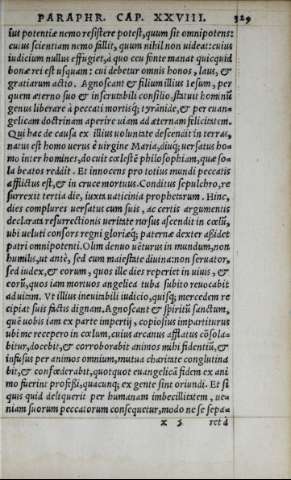 PARAPHR. CAP. XXVIII. 329
ius potentiæ nemo resistere potest, quum sit omnipotens:
cuius scientiam nemo fallit, quum nihil non uideat: cuius
iudicium nullus effugiet, à quo ceu fonte manat quicquid
bonæ rei est usquam: cui debetur omnis honos, laus, &
gratiarum actio. Agnoscant & filium illius Iesum, per
quem æterno suo & inscrutabili consilio, statuit hominũ
genus liberare à peccati mortisq; tyrãnide, & per euan-
gelicam doctrinam aperire uiam ad æternam felicitatem.
Qui hac de causa ex illius uoluntate descendit in terras,
natus est homo uerus è uirgine Maria, diuq; uersatus ho-
mo inter homines, docuit cœlestẽ philosophiam, quæ so-
la beatos reddit. Et innocens pro totius mundi peccatis
afflictus est, & in cruce mortuus. Conditus sepulchro, re
surrexit tertia die, iuxta uaticinia prophetarum. Hinc,
dies complures uersatus cum suis, ac certis argumentis
declarata resurrectionis ueritate rursus ascendit in cœlũ,
ubi ueluti consors regni gloriæq; paternæ dexter aßidet
patri omnipotenti. Olim denuo uẽturus in mundum, non
humilis, ut antè, sed cum maiestate diuina: non seruator,
sed iudex, & eorum, quos ille dies reperiet in uiuis, &
eorũ, quos iam mortuos angelica tuba subito reuocabit
ad uitam. Vt illius ineuitabili iudicio, quisq; mercedem re
cipiat suis factis dignam. Agnoscant & spiritũ sanctum,
quẽ uobis iam ex parte impertij, copiosius impartiturus
ubi me recepero in cœlum, cuius arcanus afflatus cõsola-
bitur, docebit, & corroborabit animos mihi fidentiũ, &
infusus per animos omnium, mutua charitate conglutina
bit, & confœderabit, quotquot euangelicã fidem ex ani
mo fuerint profeßi, quacunq; ex gente sint oriundi. Et si
quis quid deliquerit per humanam imbecillitatem, ue-
niam suorum peccatorum consequetur, modo ne se sepa-
x 5 ret à